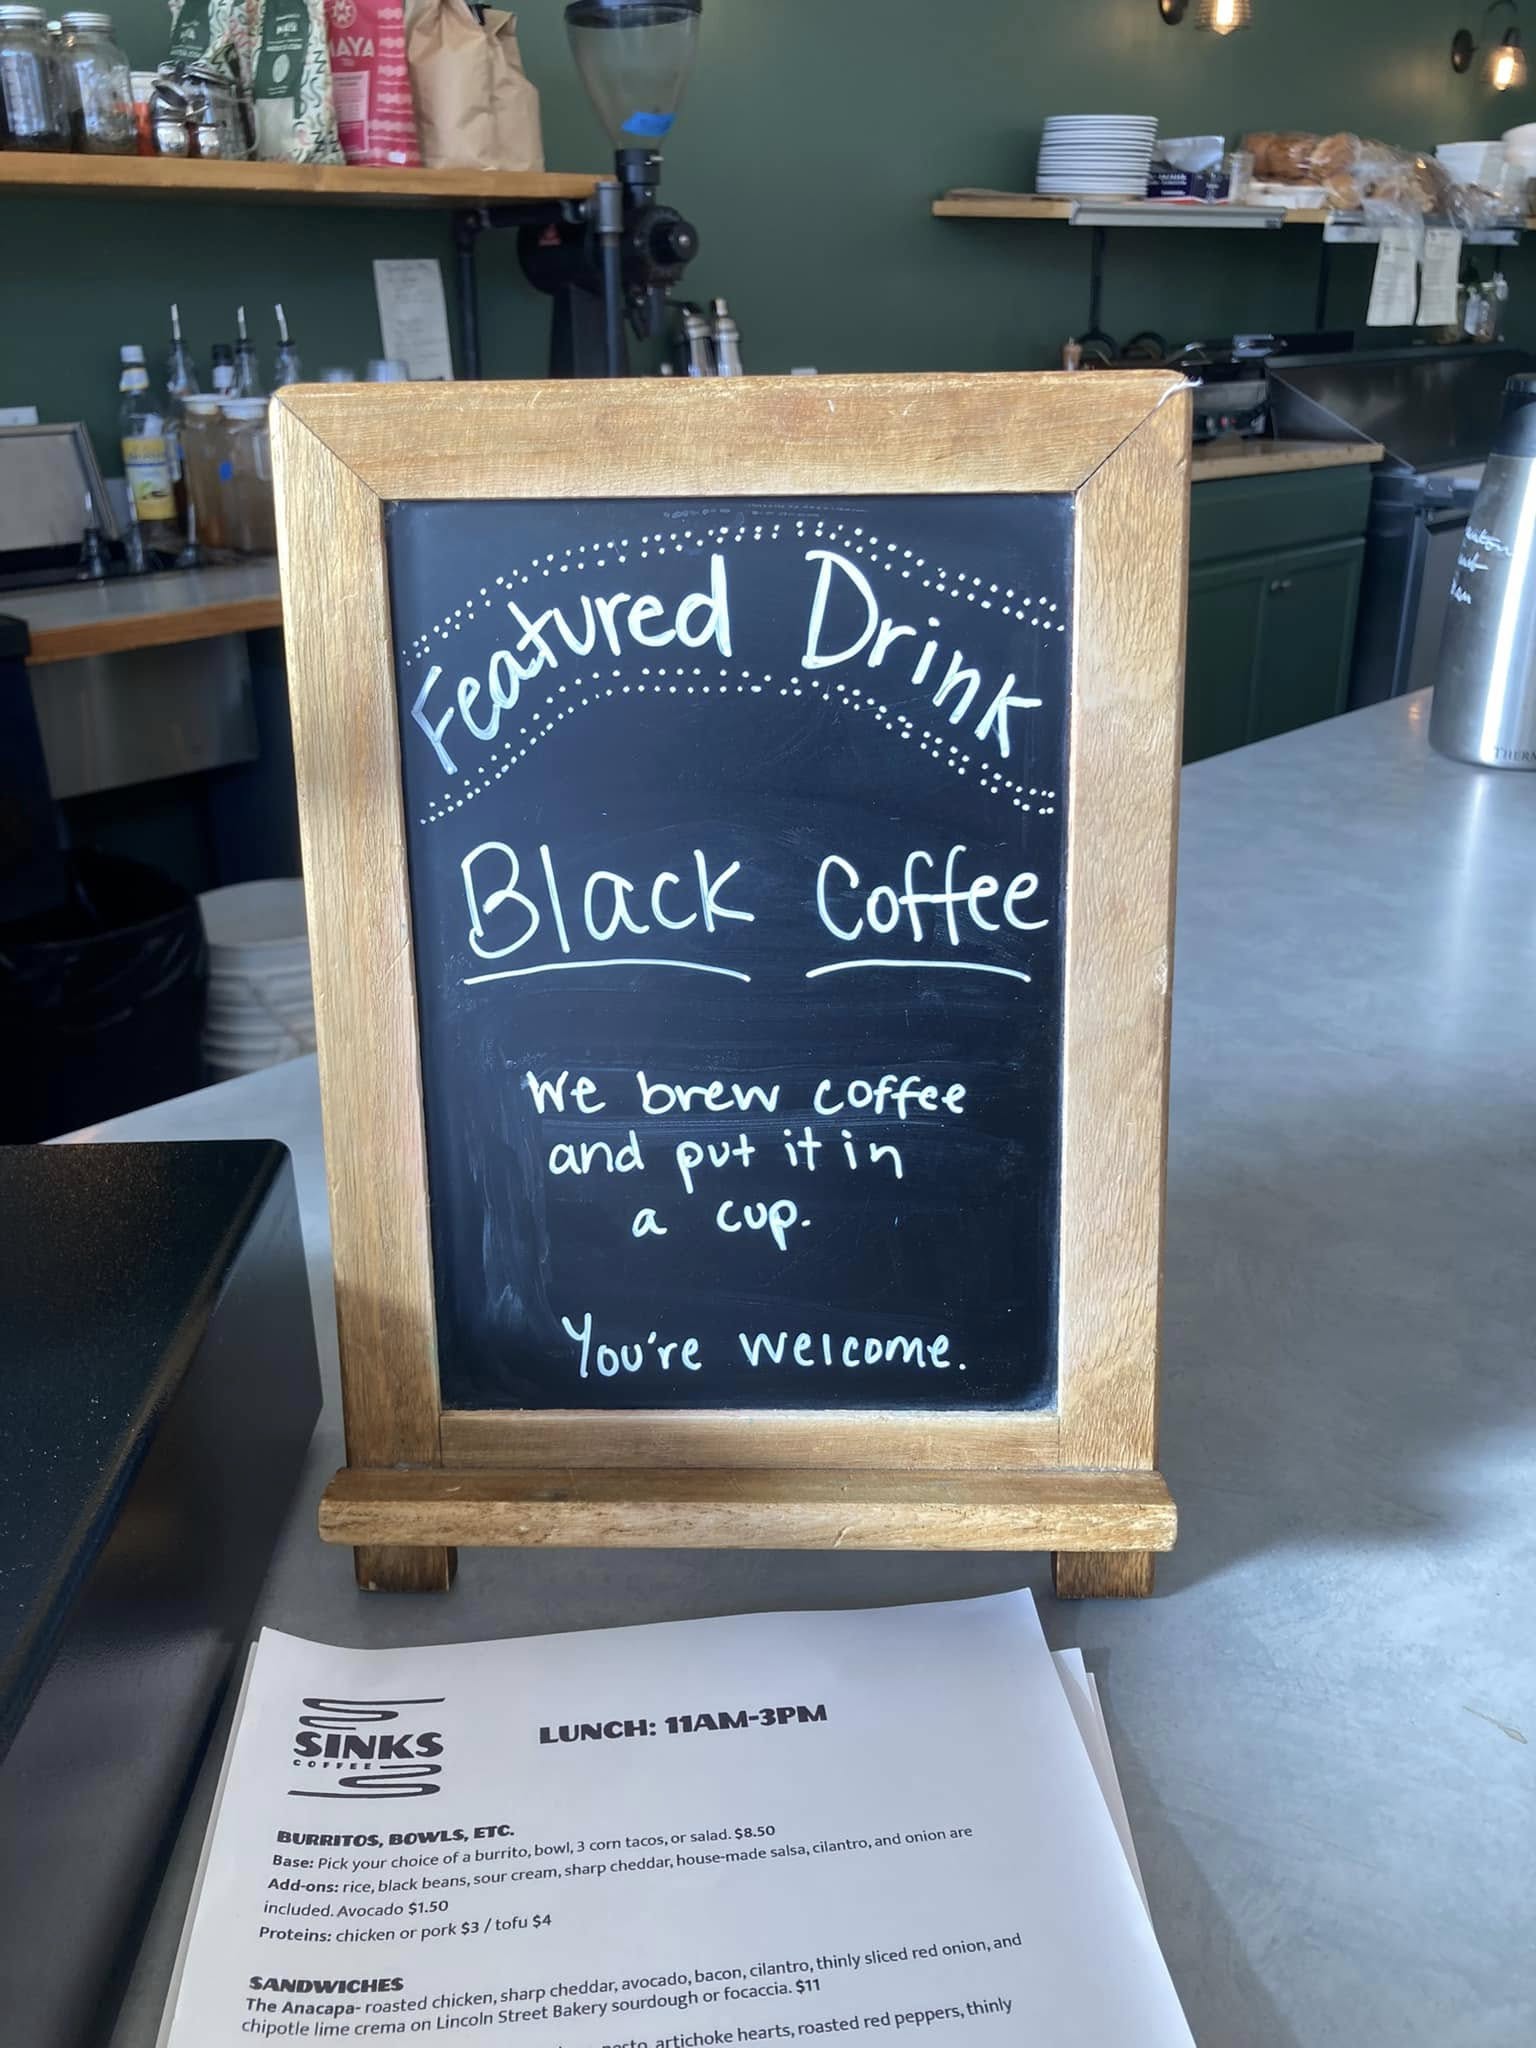 MAYA
Featured Drink
Black Coffee
We brew coffee
and put it in
a cup.
You're welcome.
SINKS
COFFEE
LUNCH: 11AM-3PM
BURRITOS, BOWLS, ETC.
Base: Pick your choice of a burrito, bowl, 3 corn tacos, or salad. $8.50
Add-ons: rice, black beans, sour cream, sharp cheddar, house-made salsa, cilantro, and onion are
included. Avocado $1.50
Proteins: chicken or pork $3 / tofu $4
SANDWICHES
The Anacapa- roasted chicken, sharp cheddar, avocado, bacon, cilantro, thinly sliced red onion, and
chipotle lime crema on Lincoln Street Bakery sourdough or focaccia. $11
pesto, artichoke hearts, roasted red peppers, thinly